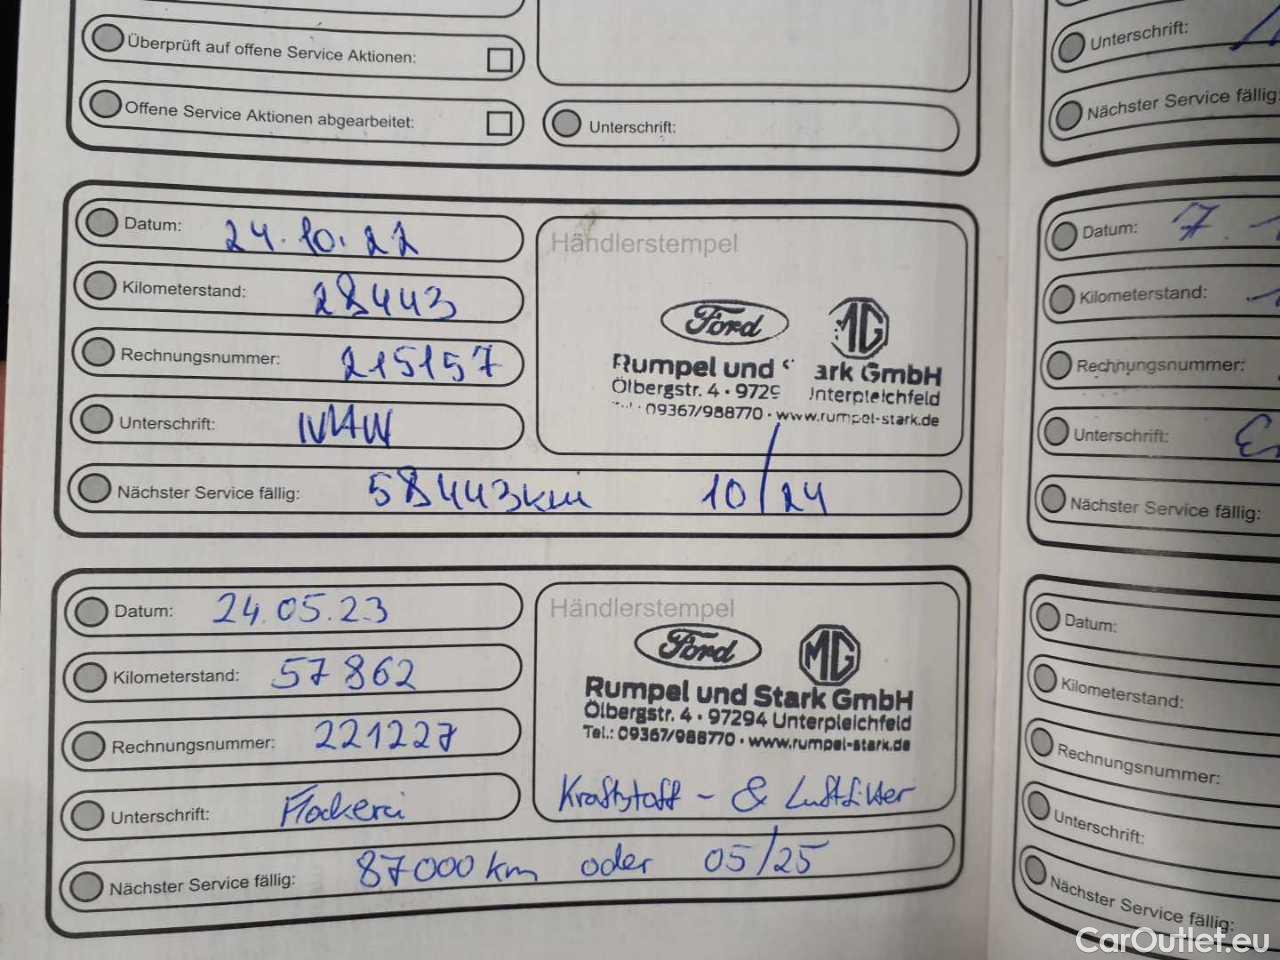 Überprüft auf offene Service Aktionen:
Offene Service Aktionen abgearbeitet:
Unterschrift:
Datum: 24.10.22
Kilometerstand: 28443
Rechnungsnummer: 215157
Unterschrift:
Nächster Service fällig: 58443km 10/24
Händlerstempel
Ford MG
Rumpel und S ark GmbH
Ölbergstr. 4 · 9729 Unterpleichfeld
09367/988770 · www.rumpel-stark.de
Datum: 24.05.23
Kilometerstand: 57862
Rechnungsnummer: 221227
Unterschrift:
Nächster Service fällig: 87000 km oder 05/25
Händlerstempel
Ford MG
Rumpel und Stark GmbH
Ölbergstr. 4 · 97294 Unterpleichfeld
Tel.: 09367/988770 · www.rumpel-stark.de
Kraftstoff- & Luftfilter
Unterschrift:
Nächster Service fällig:
Datum: 7.
Kilometerstand:
Rechnungsnummer:
Unterschrift:
Nächster Service fällig:
Datum:
Kilometerstand:
Rechnungsnummer:
Unterschrift:
Nächster Service fällig:
CarOutlet.eu